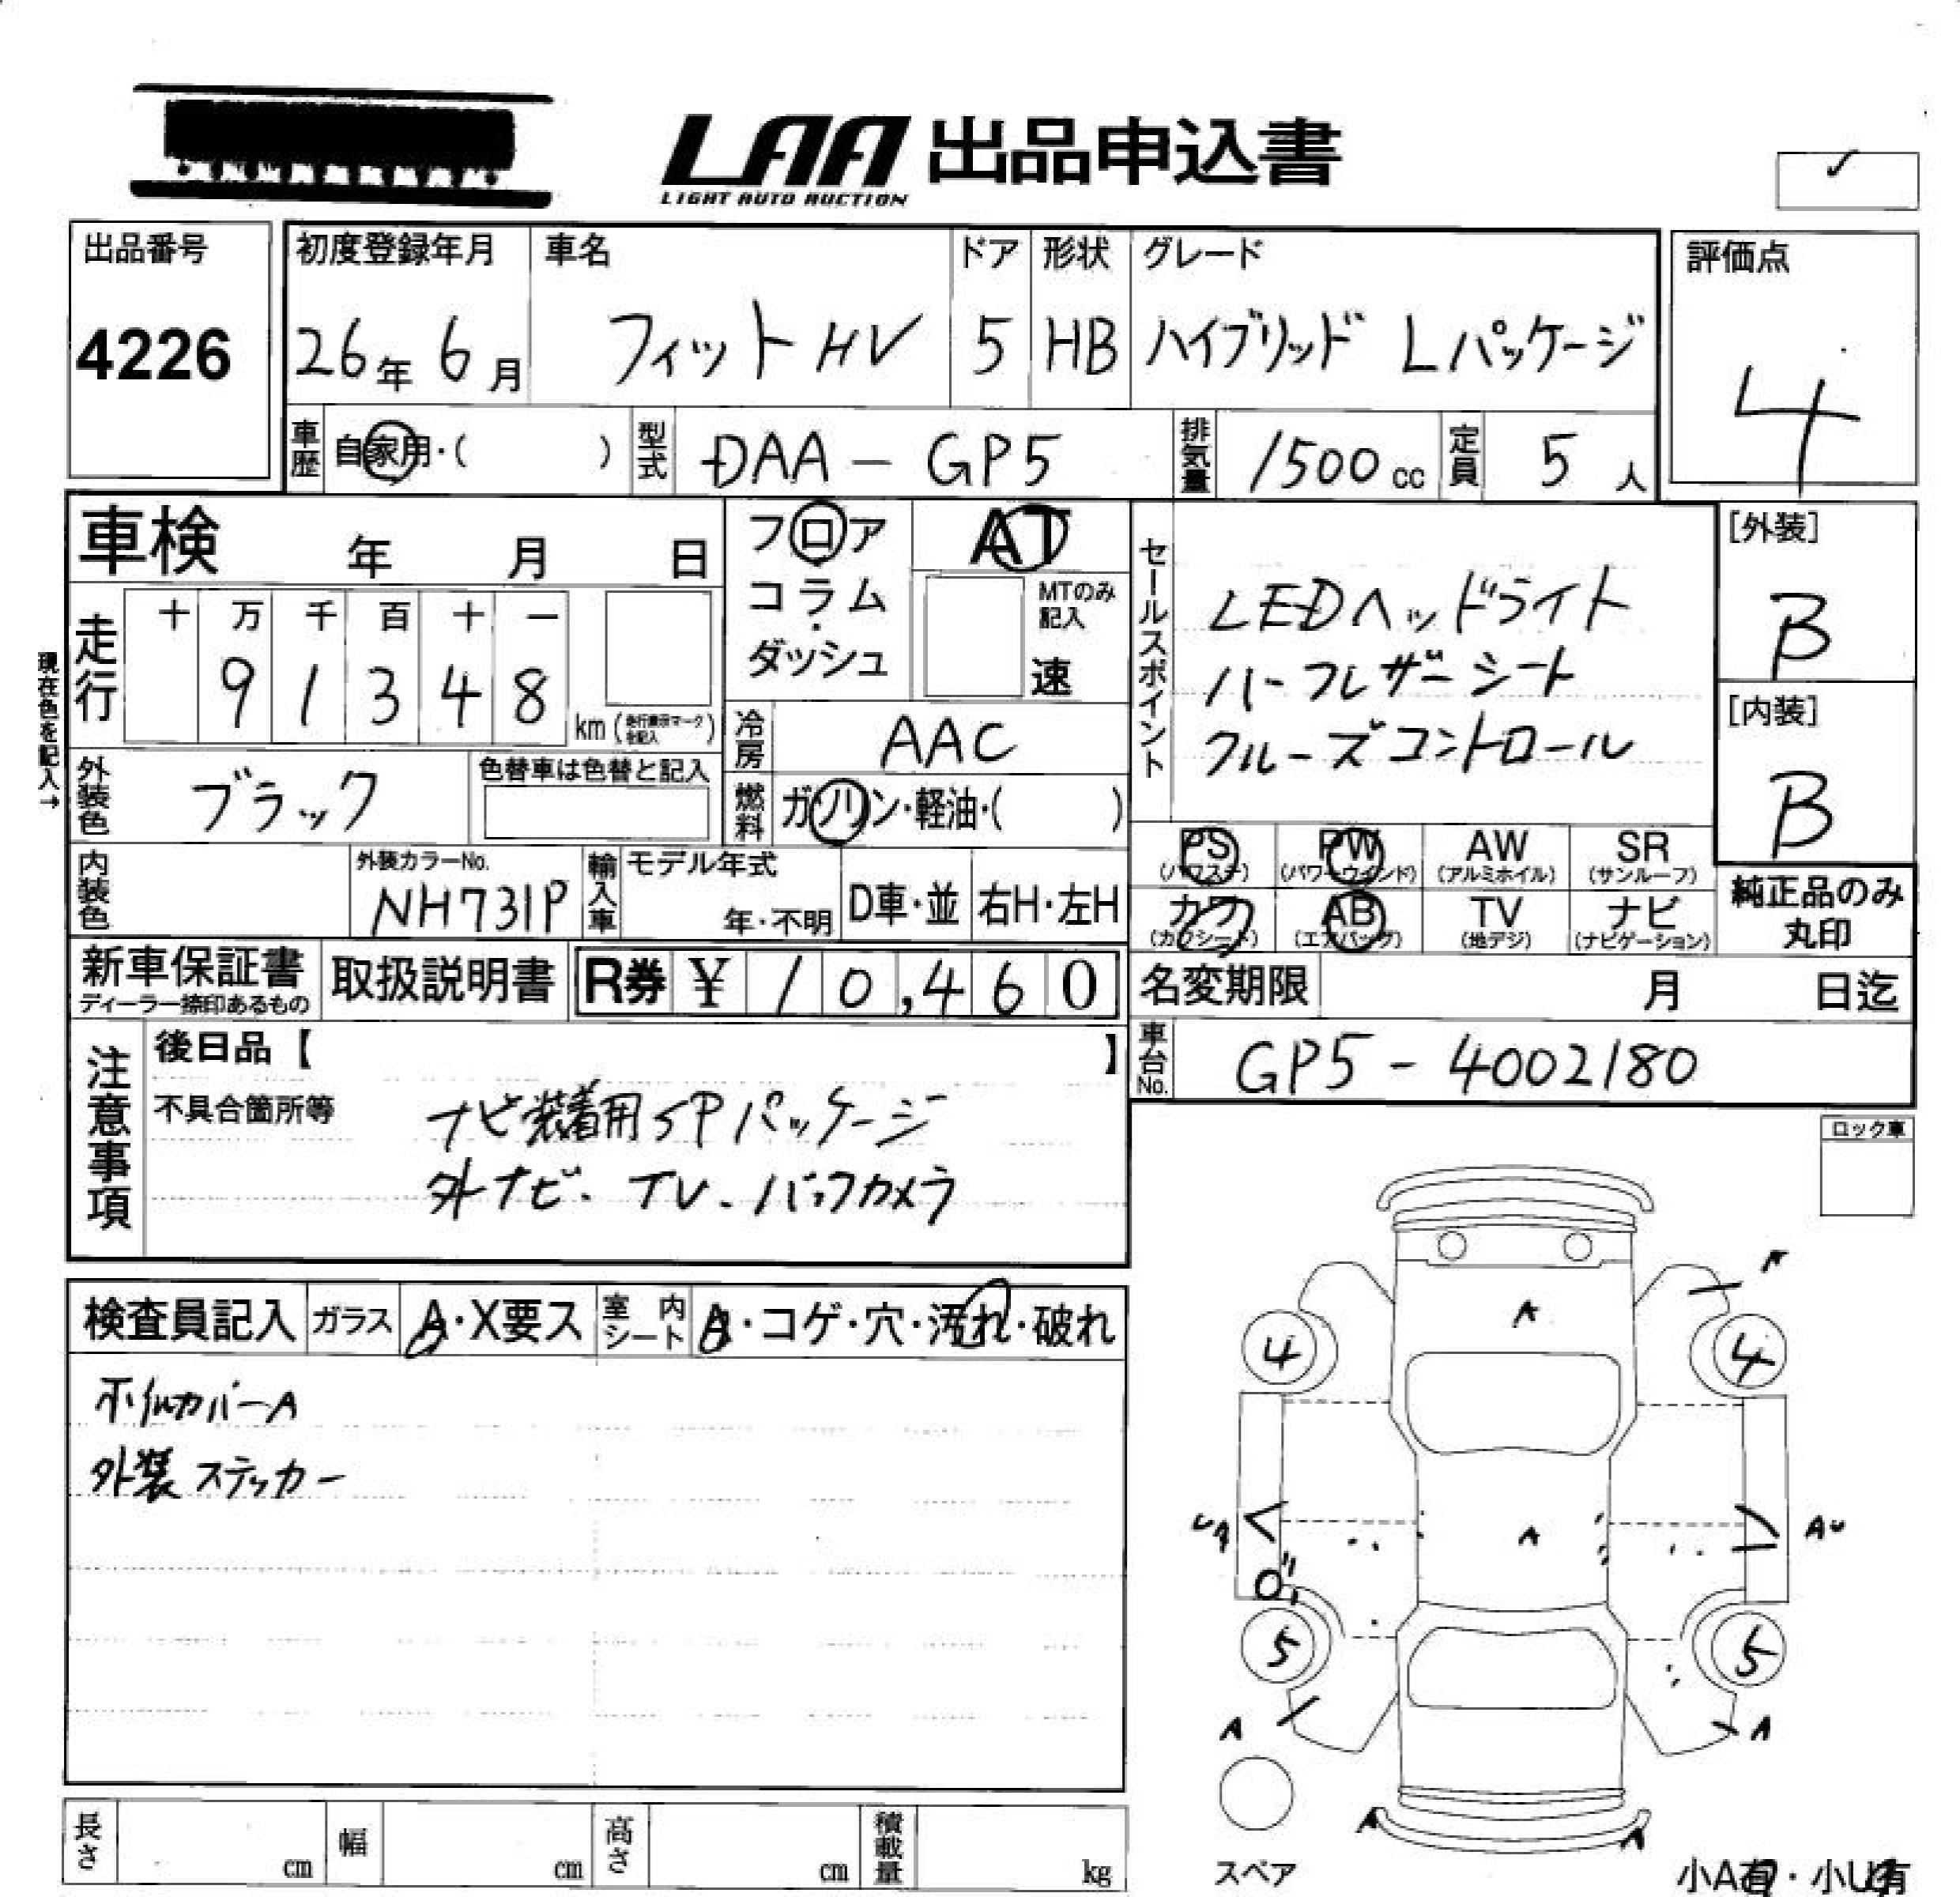 LAA 出品申込書
LIGHT AUTO AUCTION
✓
出品番号
4226
初度登録年月
26年 6月
車名
フィットHV
ドア
5
形状
HB
グレード
ハイブリッド Lパッケージ
評価点
4
車歴 自家用・( )
型式 DAA - GP5
排気量 1500 cc
定員 5 人
車検 年 月 日
現在色を記入→
走行
十 万 千 百 十 一
9 1 3 4 8
km
外装色 ブラック
色替車は色替と記入
内装色
外装カラーNo.
NH731P
フロア
コラム
・
ダッシュ
AT
MTのみ
記入
速
冷房 AAC
燃料 ガソリン・軽油・( )
輸入車 モデル年式
年・不明
D車・並
右H・左H
セールスポイント
LEDヘッドライト
ハーフレザーシート
クルーズコントロール
[外装]
B
[内装]
B
PS
(パワステ)
PW
(パワーウインド)
AW
(アルミホイル)
SR
(サンルーフ)
カワ
(カワシート)
AB
(エアバッグ)
TV
(地デジ)
ナビ
(ナビゲーション)
純正品のみ
丸印
新車保証書
ディーラー捺印あるもの
取扱説明書
R券 ¥ 10,460
名変期限 月 日迄
車台No. GP5 - 4002180
注意事項
後日品【 】
不具合箇所等
ナビ装着用SPパッケージ
外ナビ. TV. バックカメラ
ロック車
検査員記入
ガラス A・X要ス
室内シート A・コゲ・穴・汚れ・破れ
ホイルカバーA
外装ステッカー
A
A
4
4
UA
A
AU
5
5
A
A
A
A
スペア
小A有・小U有
長さ cm
幅 cm
高さ cm
積載量 kg